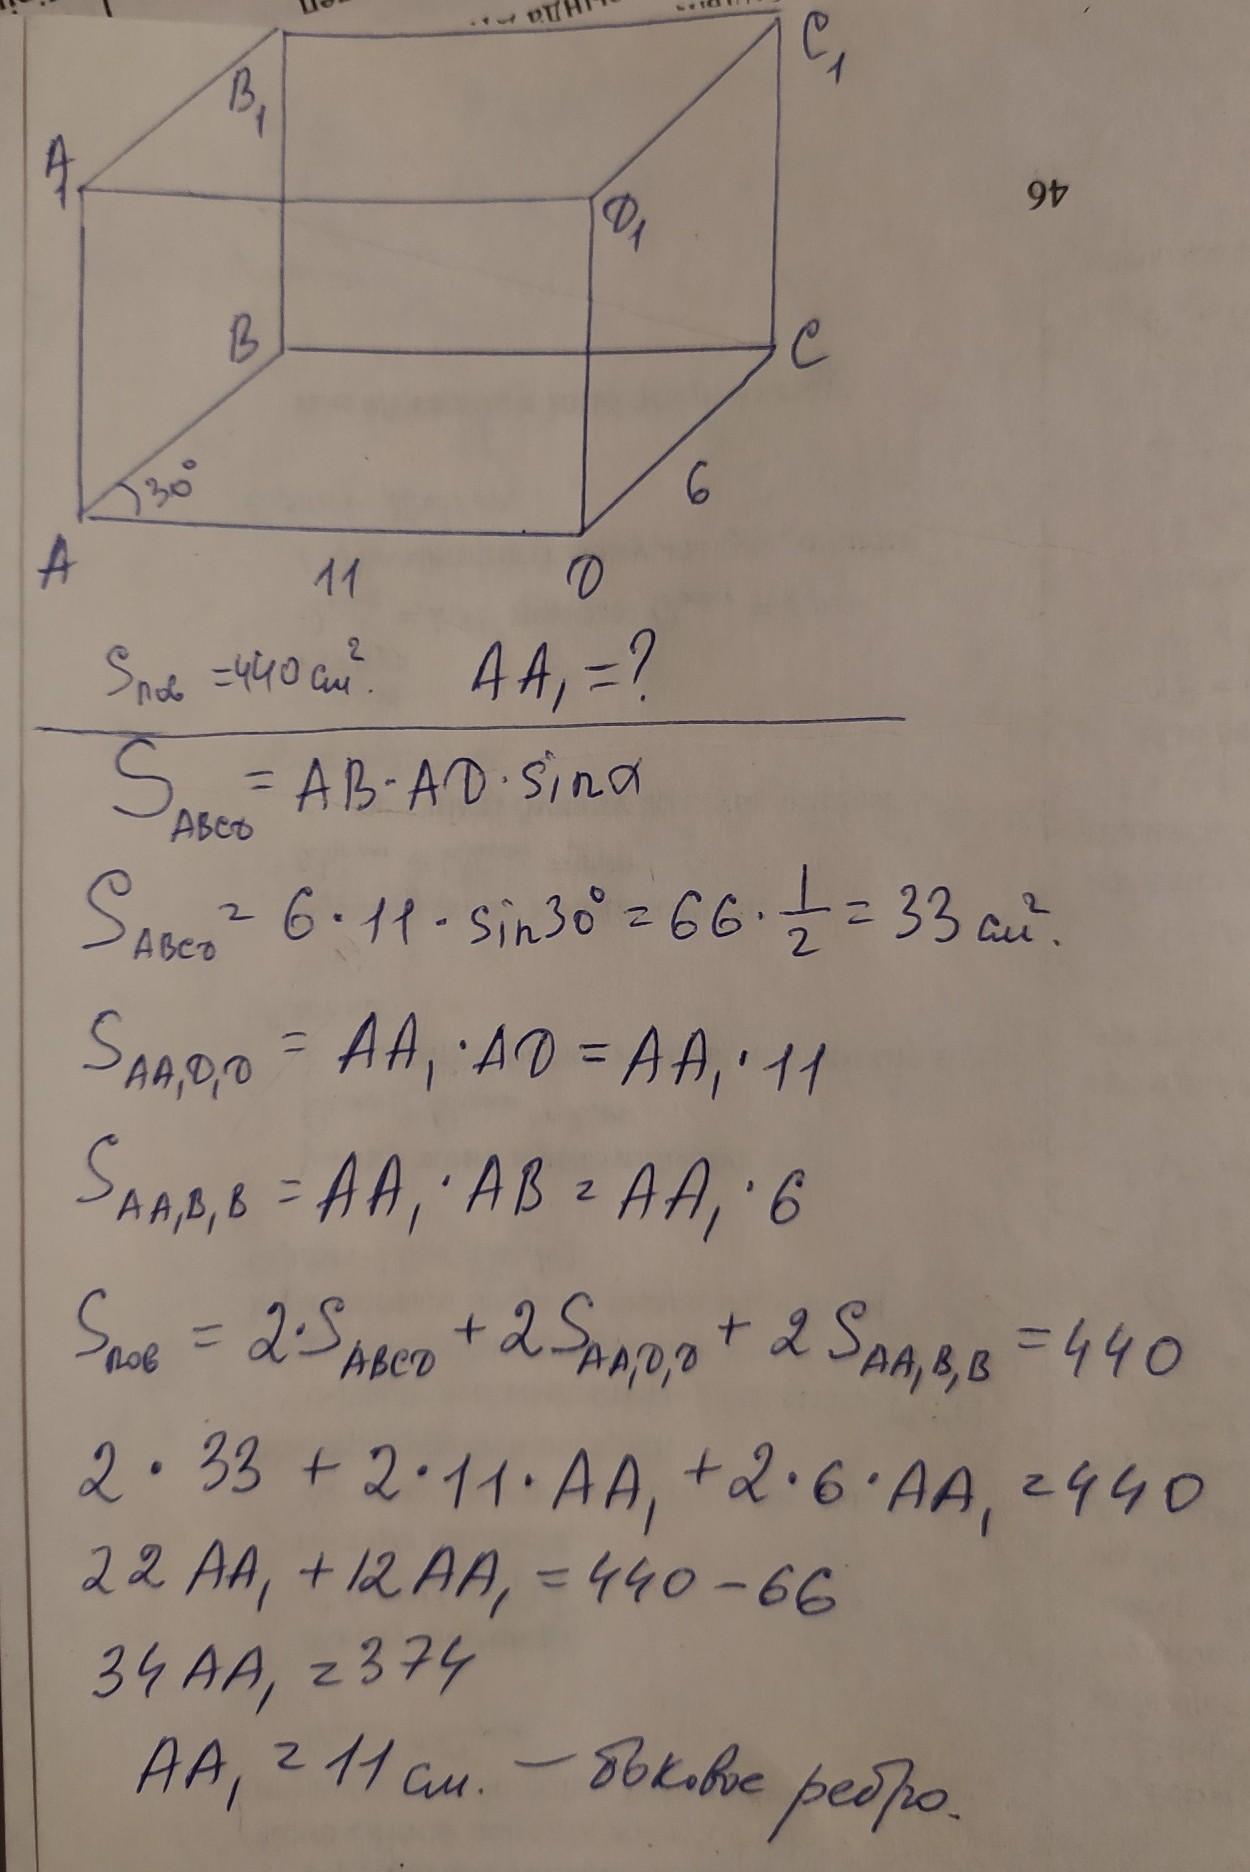 B₁
C₁
A₁
D₁
46
B
C
30°
6
A
11
D
Sпов = 440 см². AA₁ = ?
S_ABCD = AB · AD · sin α
S_ABCD = 6 · 11 · sin 30° = 66 · 1/2 = 33 см².
S_AA₁D₁D = AA₁ · AD = AA₁ · 11
S_AA₁B₁B = AA₁ · AB = AA₁ · 6
Sпов = 2 · S_ABCD + 2S_AA₁D₁D + 2S_AA₁B₁B = 440
2 · 33 + 2 · 11 · AA₁ + 2 · 6 · AA₁ = 440
22 AA₁ + 12 AA₁ = 440 - 66
34 AA₁ = 374
AA₁ = 11 см. — боковое ребро.